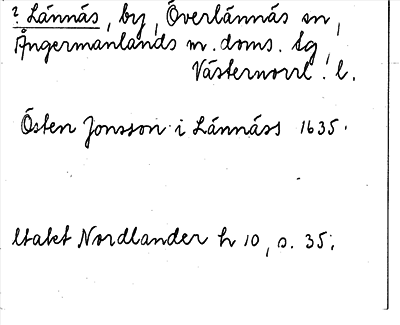 ? Lännäs, by, Överlännäs sn,
Ångermanlands m. doms. tg,
Västernorrl. l.
Östen Jonsson i Lännäss 1635.
ltakt Nordlander h 10, s. 35;